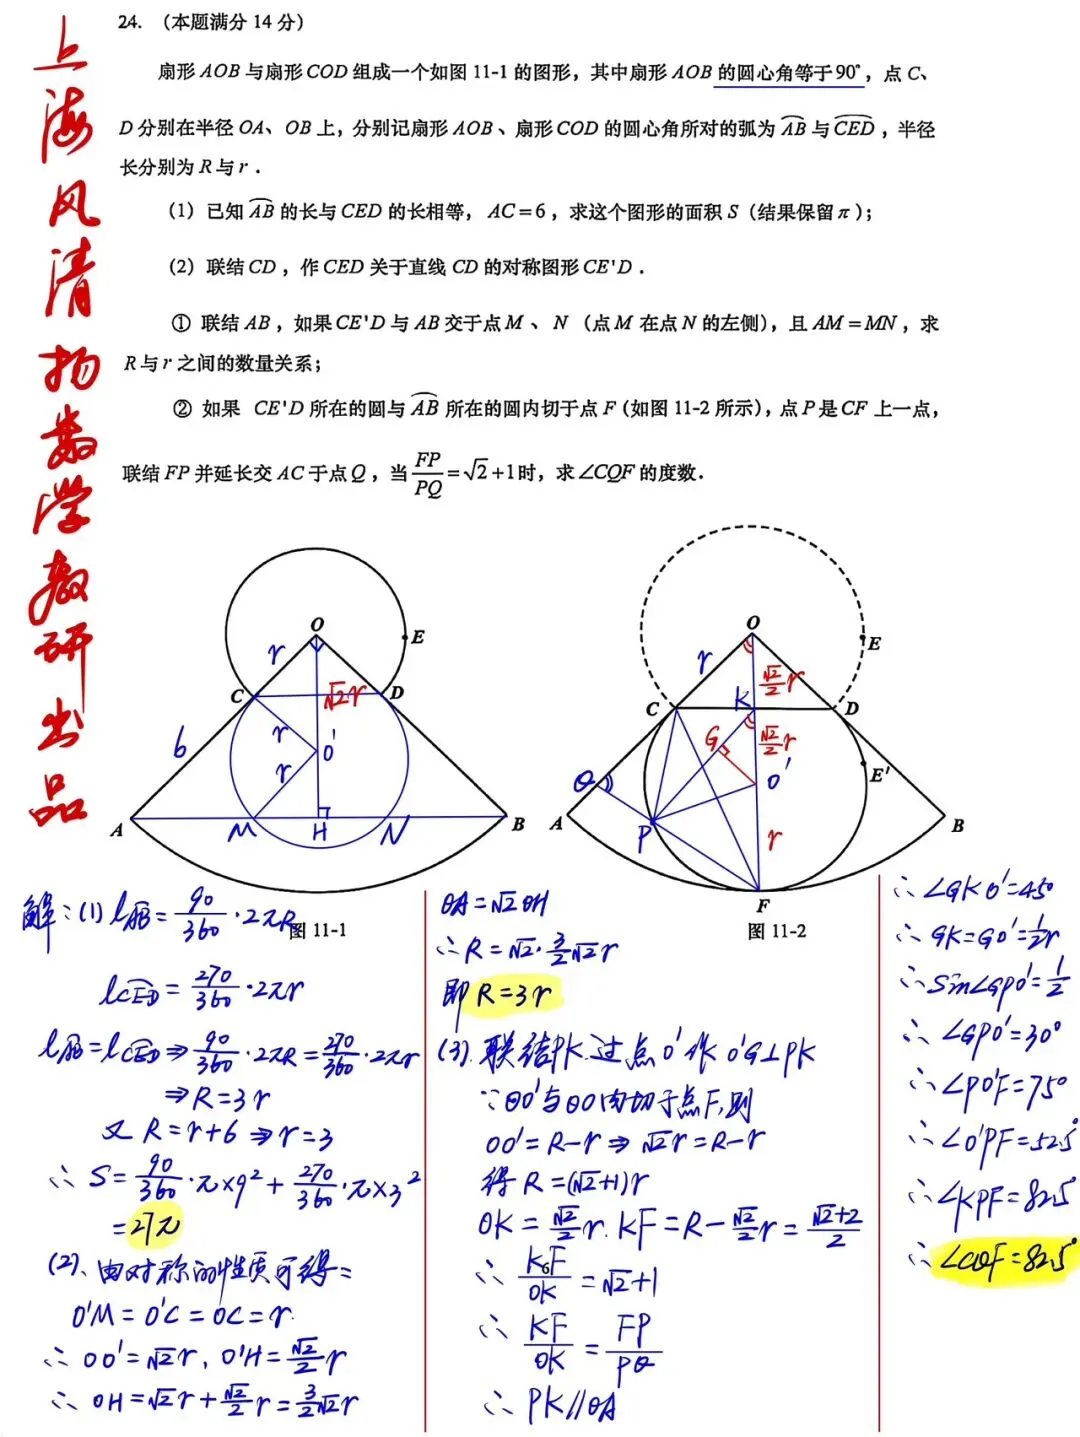 上海风清扬数学教研出品
24. （本题满分 14 分）
扇形 AOB 与扇形 COD 组成一个如图 11-1 的图形，其中扇形 AOB 的圆心角等于90°，点 C、
D 分别在半径 OA、OB 上，分别记扇形 AOB、扇形 COD 的圆心角所对的弧为 AB 与 CED，半径
长分别为 R 与 r．
（1）已知 AB 的长与 CED 的长相等，AC=6，求这个图形的面积 S（结果保留π）；
（2）联结 CD，作 CED 关于直线 CD 的对称图形 CE'D．
① 联结 AB，如果 CE'D 与 AB 交于点 M、N（点 M 在点 N 的左侧），且 AM=MN，求
R 与 r 之间的数量关系；
② 如果 CE'D 所在的圆与 AB 所在的圆内切于点 F（如图 11-2 所示），点 P 是 CF 上一点，
联结 FP 并延长交 AC 于点 Q，当 FP/PQ=√2+1时，求∠CQF 的度数．
O
E
r
C
√2r
D
r
6
O'
r
A
M
H
N
B
图 11-1
O
E
r
√2/2 r
K
C
D
G
√2/2 r
Q
O'
E'
A
P
r
B
F
图 11-2
解：(1) lAB=90/360·2πR
lCED=270/360·2πr
lAB=lCED⇒90/360·2πR=270/360·2πr
⇒R=3r
又 R=r+6⇒r=3
∴S=90/360·π×9²+270/360·π×3²
=27π
(2)、由对称的性质可得：
O'M=O'C=OC=r
∴OO'=√2r，O'H=√2/2 r
∴OH=√2r+√2/2 r=3/2√2r
OA=√2OH
∴R=√2·3/2√2r
即 R=3r
(3).联结PK.过点O'作O'G⊥PK
∵⊙O'与⊙O内切于点F,则
OO'=R-r⇒√2r=R-r
得 R=(√2+1)r
OK=√2/2 r.KF=R-√2/2 r=√2+2/2
∴KF/OK=√2+1
∴KF/OK=FP/PQ
∴PK∥OA
∴∠GKO'=45°
∴GK=GO'=1/2r
∴Sin∠GPO'=1/2
∴∠GPO'=30°
∴∠PO'F=75°
∴∠O'PF=52.5°
∴∠KPF=82.5°
∴∠CQF=82.5°